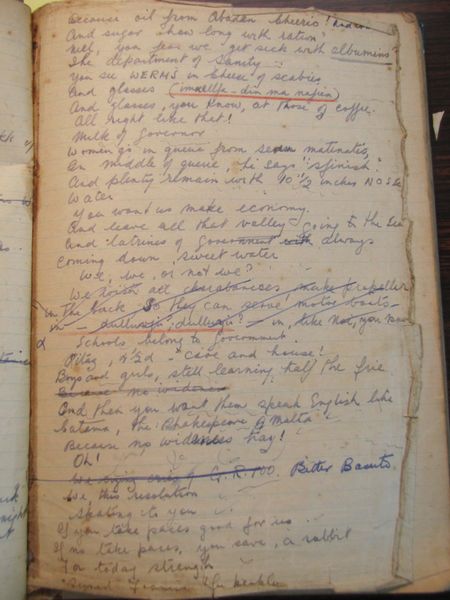 Because oil from Abadan Cheerio!
And sugar show long with ration?
Well, you fess we get sick with albumins?
The department of Sanity
You see WERMS in cheese of scabies
And glasses (
And glasses, you know, at those of coffee.
All right like that!
Milk of Governor
Women go in queue from
En middle of queue, hi says 'sfinish'
And plenty remain with 10½ inches NOSE
Water
You want us make economy
And leave all that valley going to the sea
And latrines of Government with always
Coming down, sweet water
We, we, or not we?
We with all charabancs make propeller
in the back So they can serve motor boats
in - dulluvju, dulluvju? - in, like not, you
Schools belong to Government.
Pitaz, 2½d - "cave and house"!
Boys and girls, still learning half the free
Because no wideness
And then you want them speak English like
Catania, the Shakespeare of Malta
Because no wideness hay!
Oh!
We enjoy G.R.100. Bitter Basuto
We, this resolution
Skating to you
If you take paces good for us
If no take paces, you save, a rabbit
For today strength